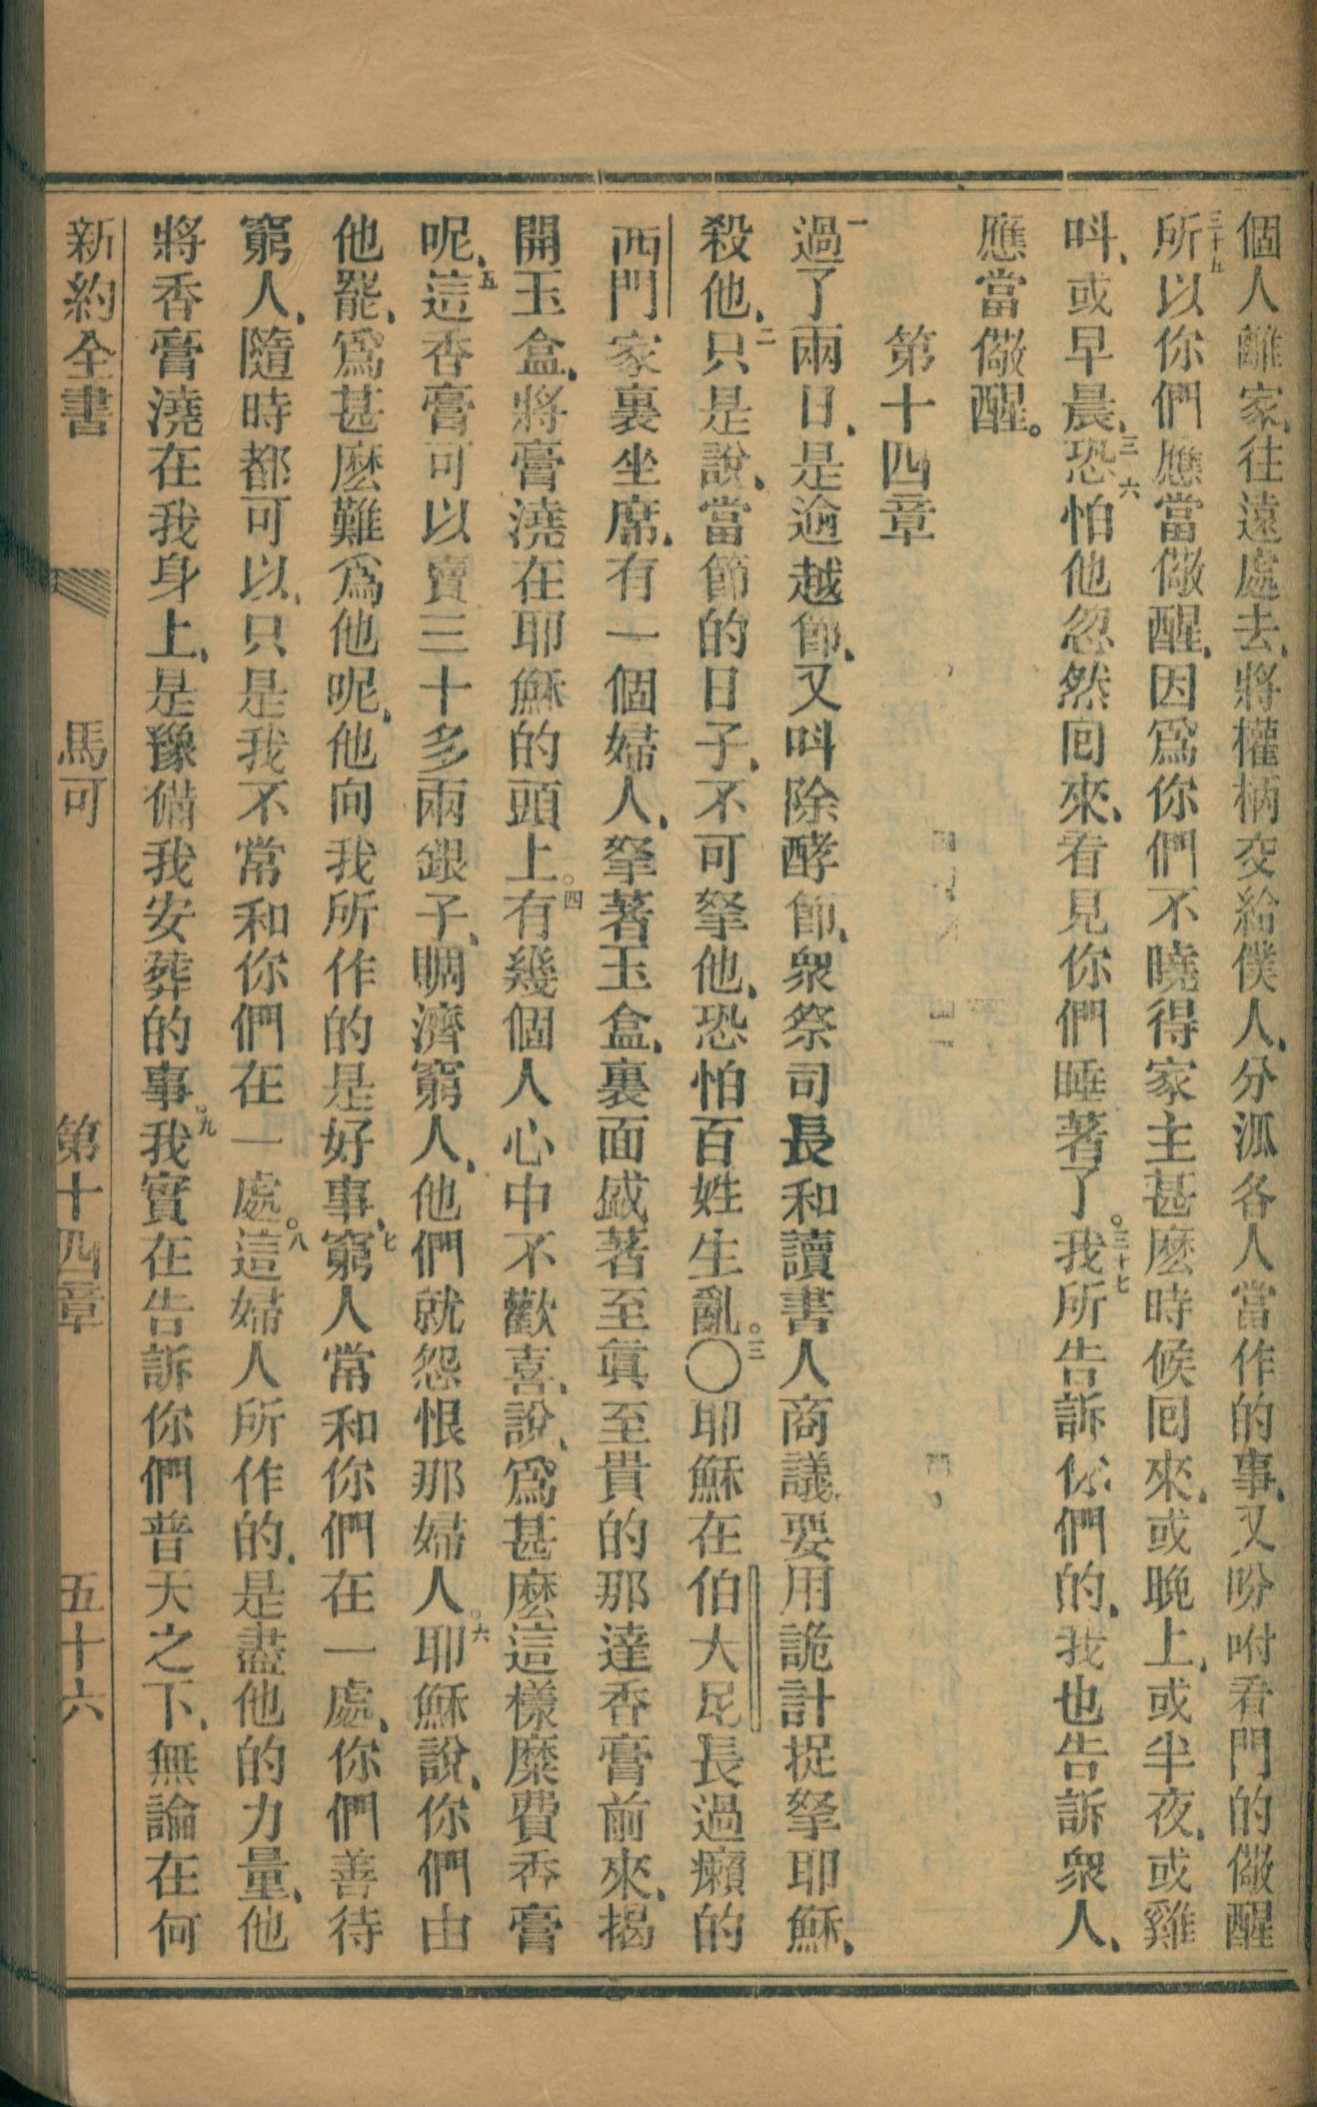 個人離家、往遠處去、將權柄交給僕人、分泒各人當作的事、又吩咐看門的儆醒
三十五所以你們應當儆醒、因爲你們不曉得家主甚麽時候囘來、或晚上、或半夜、或雞
呌、或早晨、三六恐怕他忽然囘來、看見你們睡著了。三十七我所告訴你們的、我也告訴衆人、
應當儆醒。
第十四章
一過了兩日、是逾越節、又呌除酵節、衆祭司長和讀書人商議、要用詭計捉拏耶穌、
殺他、二只是說、當節的日子、不可拏他、恐怕百姓生亂。三〇耶穌在伯大尼長過癩的
西門家裏坐席、有一個婦人、拏著玉盒、裏面盛著至眞至貴的那達香膏前來、揭
開玉盒、將膏澆在耶穌的頭上。四有幾個人心中不歡喜、說、爲甚麽這樣糜費香膏
呢、五這香膏可以賣三十多兩銀子、賙濟窮人、他們就怨恨那婦人。六耶穌說、你們由
他罷、爲甚麽難爲他呢、他向我所作的是好事、七窮人常和你們在一處、你們善待
窮人、隨時都可以、只是我不常和你們在一處。八這婦人所作的、是盡他的力量、他
將香膏澆在我身上、是豫備我安葬的事。九我實在告訴你們普天之下、無論在何
新約全書 馬可 第十四章 五十六